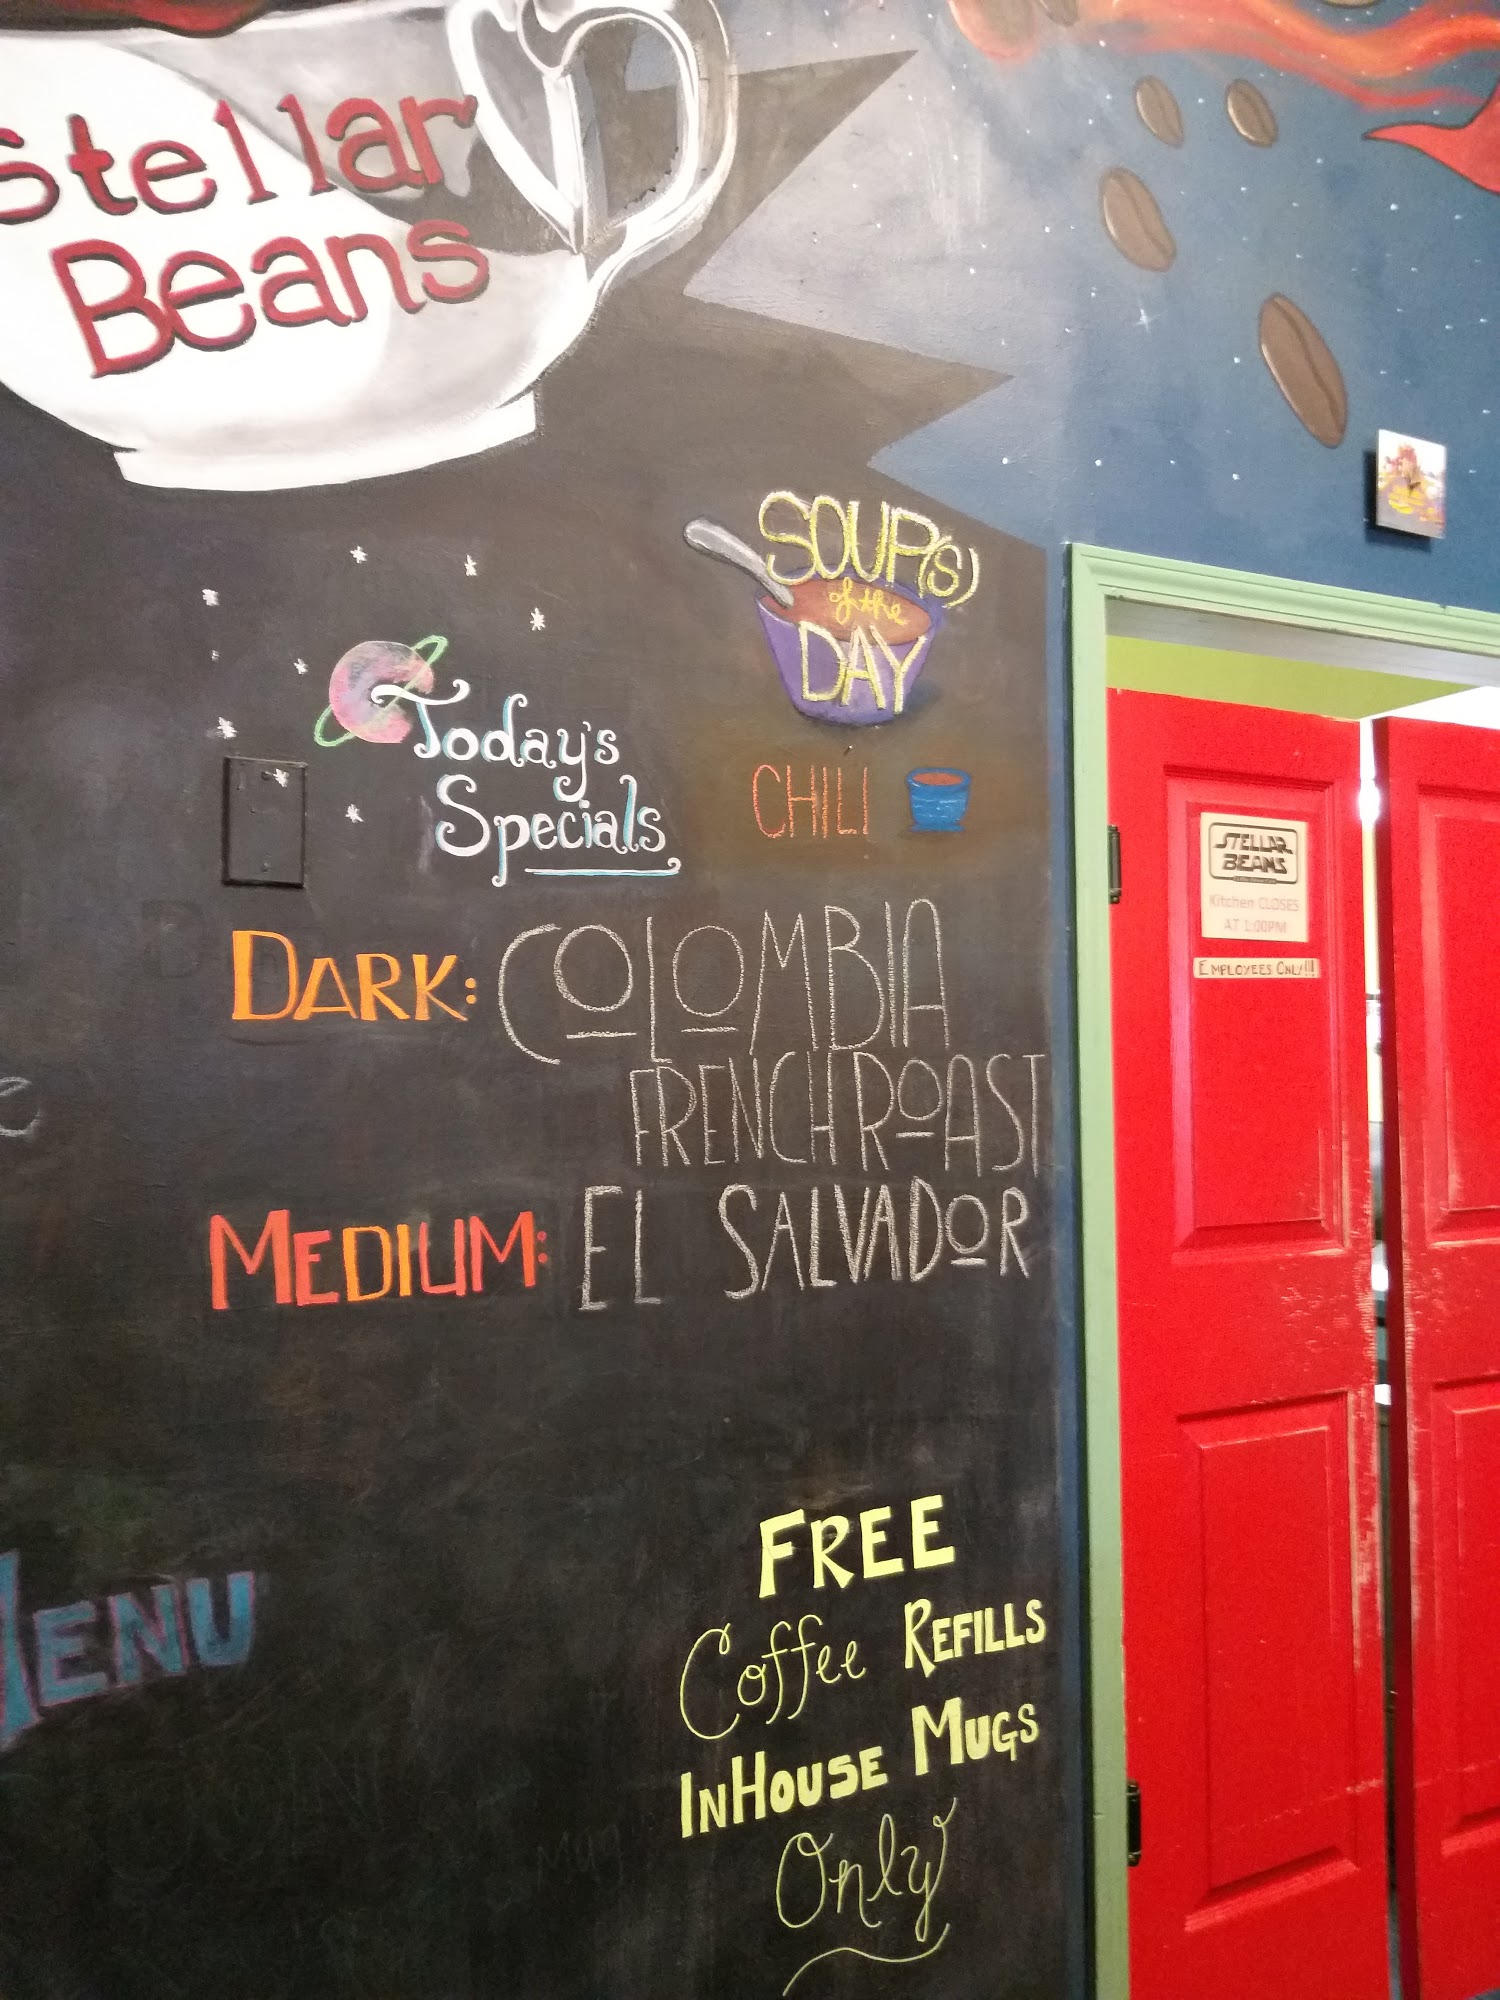 Stellar
Beans
SOUP(S)
of the
DAY
Today's
Specials
CHILI
STELLAR
BEANS
Kitchen CLOSES
AT 1:00PM
EMPLOYEES ONLY!!!
DARK: COLOMBIA
FRENCH ROAST
MEDIUM: EL SALVADOR
FREE
Coffee REFILLS
INHOUSE MUGS
Only
MENU